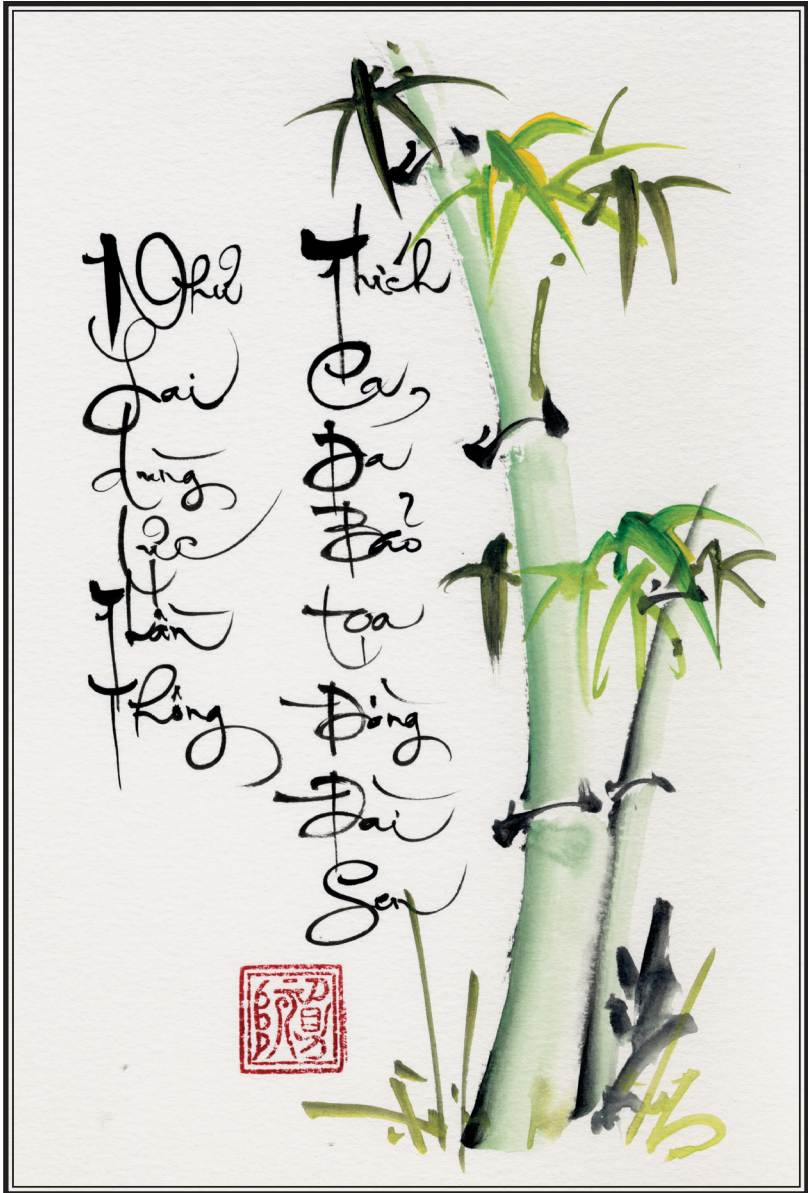 Như Lai dùng lực Thần Thông
Thích Ca, Đa Bảo tọa Đồng Đài Sen